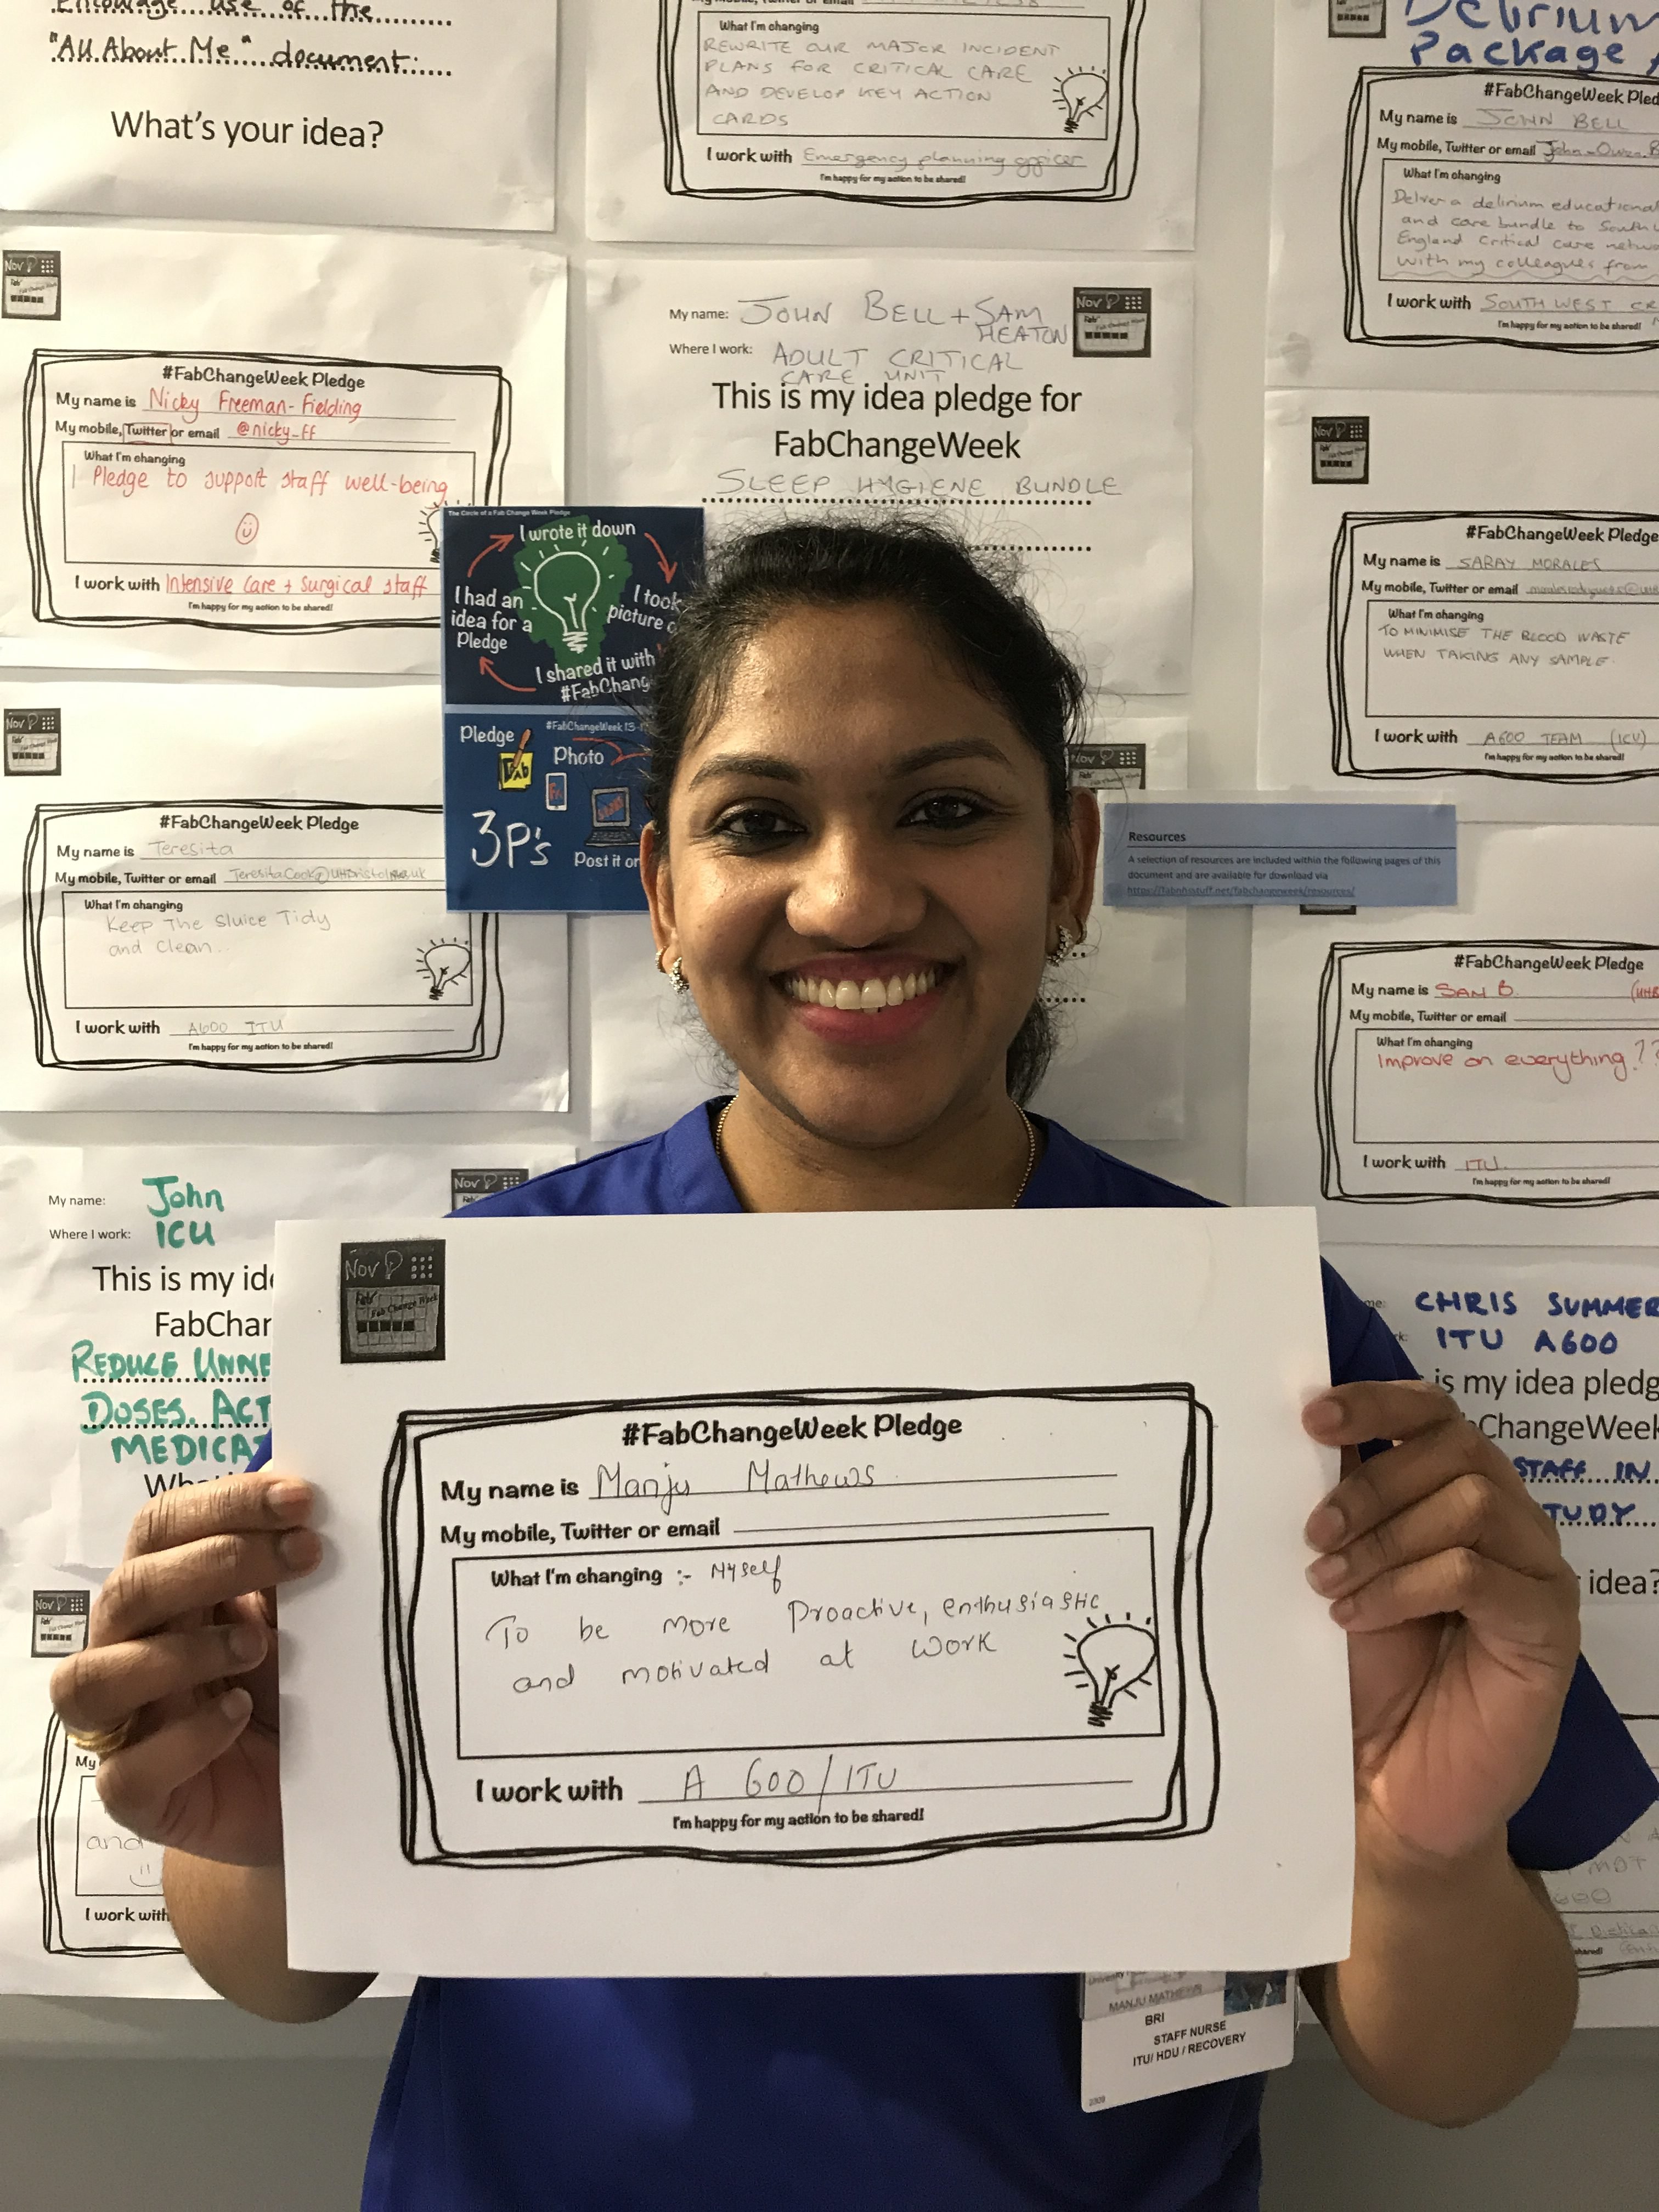 Encourage use of the
"All About Me" document:
What's your idea?
My mobile, Twitter or email
What I'm changing
REWRITE OUR MAJOR INCIDENT
PLANS FOR CRITICAL CARE
AND DEVELOP KEY ACTION
CARDS
I work with Emergency planning officer
I'm happy for my action to be shared!
Delirium
Package
#FabChangeWeek Pled
My name is JOHN BELL
My mobile, Twitter or email John-Owen.B
What I'm changing
Deliver a delirium educational
and care bundle to South
England Critical care netwo
with my colleagues from
I work with SOUTH WEST CR
I'm happy for my action to be shared!
Nov
Fab Change Week
#FabChangeWeek Pledge
My name is Nicky Freeman-Fielding
My mobile, Twitter or email @nicky_ff
What I'm changing
I Pledge to support staff well-being
I work with Intensive Care + Surgical staff
I'm happy for my action to be shared!
My name: JOHN BELL + SAM
HEATON
Nov
Where I work: ADULT CRITICAL
CARE UNIT
This is my idea pledge for
FabChangeWeek
SLEEP HYGIENE BUNDLE
Nov
#FabChangeWeek Pledge
My name is SARAY MORALES
My mobile, Twitter or email
What I'm changing
TO MINIMISE THE BLOOD WASTE
WHEN TAKING ANY SAMPLE.
I work with A600 TEAM (ICU)
I'm happy for my action to be shared!
The Circle of a Fab Change Week Pledge
I wrote it down
I took
picture o
I had an
idea for a
Pledge
I shared it with
#FabChang
Pledge
#FabChangeWeek 13-1
Fab
Photo
3P's
Post it on
Nov
#FabChangeWeek Pledge
My name is Teresita
My mobile, Twitter or email
What I'm changing
Keep The Sluice Tidy
and Clean..
I work with A600 ITU
I'm happy for my action to be shared!
Nov
Resources
A selection of resources are included within the following pages of this
document and are available for download via
https://fabnhsstuff.net/fabchangeweek/resources/
#FabChangeWeek Pledge
My name is SAM B. (UHB
My mobile, Twitter or email
What I'm changing
Improve on everything??
I work with ITU.
I'm happy for my action to be shared!
My name: John
Where I work: ICU
Nov
This is my ide
FabChan
REDUCE UNNE
DOSES. ACT
MEDICAT
CHRIS SUMMER
ITU A600
is my idea pledg
bChangeWeek
STAFF IN
TUDY
idea?
Nov
Fab Change Week
#FabChangeWeek Pledge
My name is Manju Mathews
My mobile, Twitter or email
What I'm changing :- Myself
To be more Proactive, enthusiastic
and motivated at work
I work with A 600/ITU
I'm happy for my action to be shared!
Nov
My
and
I work with
MANJU MATHEWS
BRI
STAFF NURSE
ITU/ HDU / RECOVERY